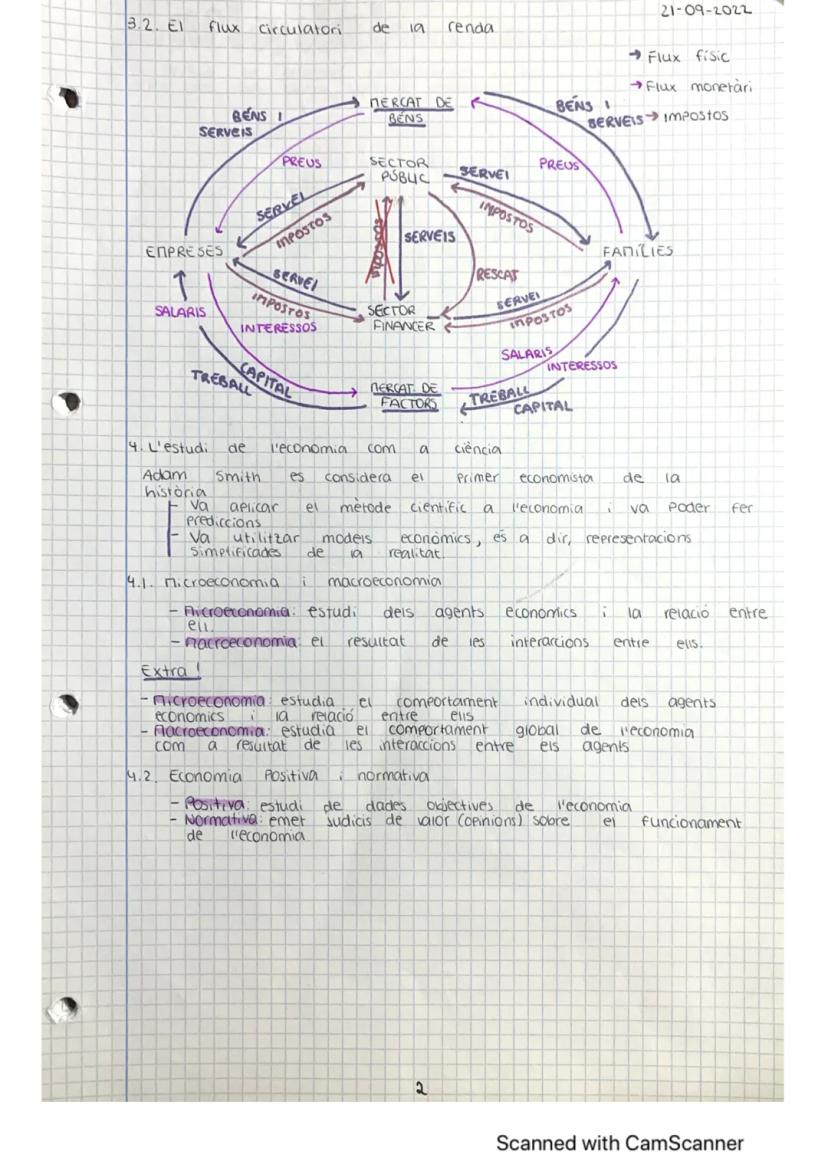 21-09-2022
3.2. El flux circulatori de la renda
→ Flux físic
→ Flux monetàri
→ Impostos
MERCAT DE
BÉNS
BÉNS I
SERVEIS
BÉNS I
SERVEIS
PREUS
PREUS
SECTOR
PÚBLIC
SERVEI
SERVEI
IMPOSTOS
IMPOSTOS
EMPRESES
SERVEIS
FAMÍLIES
SERVEI
RESCAT
IMPOSTOS
SECTOR
FINANCER
SERVEI
IMPOSTOS
SALARIS
INTERESSOS
SALARIS
INTERESSOS
TREBALL
CAPITAL
MERCAT DE
FACTORS
TREBALL
CAPITAL
4. L'estudi de l'economia com a ciència
Adam Smith es considera el primer economista de la
història
- Va aplicar el mètode científic a l'economia i va poder fer
prediccions
- Va utilitzar models econòmics, és a dir, representacions
simplificades de la realitat.
4.1. Microeconomia i macroeconomia
- Microeconomia: estudi dels agents economics i la relació entre
ell.
- Macroeconomia: el resultat de les interaccions entre ells.
Extra!
- Microeconomia: estudia el comportament individual dels agents
economics i la relació entre ells
- Macroeconomia: estudia el comportament global de l'economia
com a resultat de les interaccions entre els agents
4.2. Economia Positiva i normativa
- Positiva: estudi de dades objectives de l'economia
- Normativa: emet judicis de valor (opinions) sobre el funcionament
de l'economia
2
Scanned with CamScanner